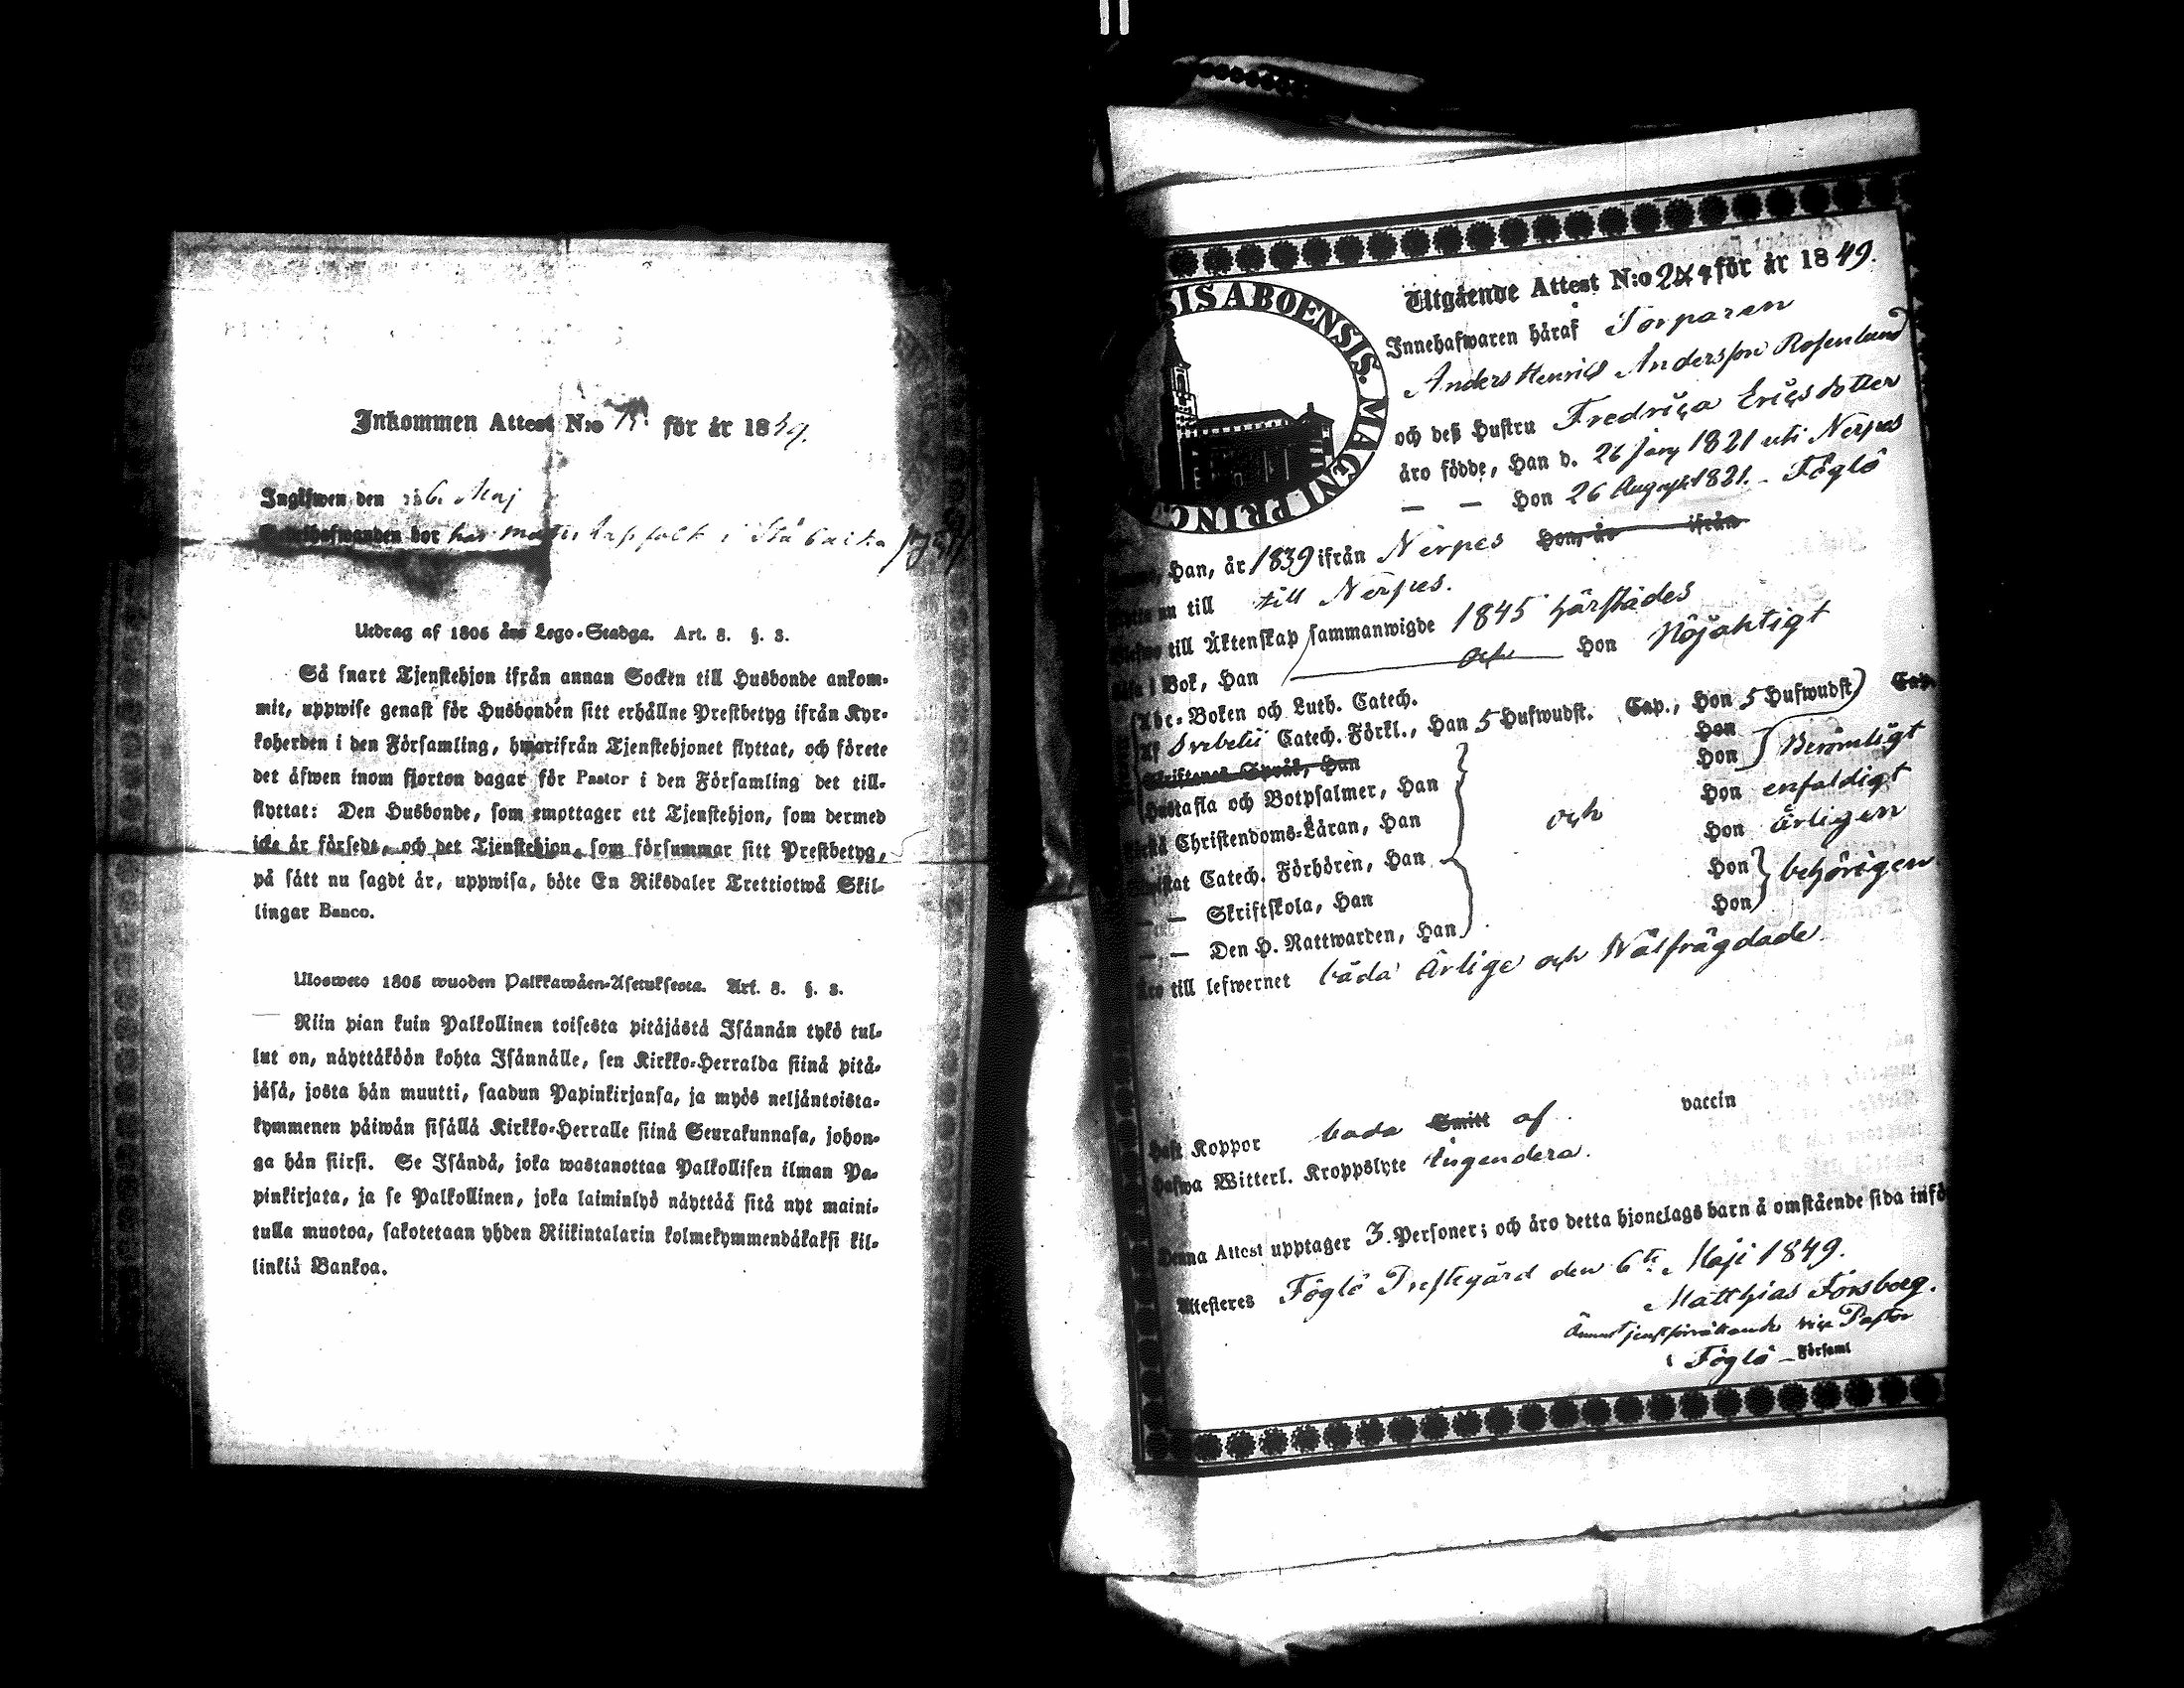 Inkommen Attest N:o för år 1849.
Ingifwen den 26 Maj
bor hos
Utdrag af 1805 års Lego-Stadga. Art. 8. §. 3.
Så snart Tjenstehjon ifrån annan Socken till Husbonde ankom-
mit, uppwise genast för Husbonden sitt erhållne Prestbetyg ifrån Kyr-
koherden i den Församling, hwarifrån Tjenstehjonet flyttat, och förete
det äfwen inom fjorton dagar för Pastor i den Församling det till-
flyttat: Den Husbonde, som emottager ett Tjenstehjon, som dermed
icke är försedt, och det Tjenstehjon, som försummar sitt Prestbetyg,
på sätt nu sagdt är, uppwisa, böte En Riksdaler Trettiotwå Skil-
lingar Banco.
Ulosweto 1805 wuoden Palkkawäen-Asetuksesta. Art. 8. §. 3.
Niin pian kuin Palkollinen toisesta pitäjästä Isännän tykö tul-
lut on, näyttäköön kohta Isännälle, sen Kirkko-Herralda siinä pitä-
jäsä, josta hän muutti, saadun Papinkirjansa, ja myös neljäntoista-
kymmenen päiwän sisällä Kirkko-Herralle siinä Seurakunnasa, johon-
ga hän siirsi. Se Isändä, joka wastanottaa Palkollisen ilman Pa-
pinkirjata, ja se Palkollinen, joka laiminlyö näyttää sitä nyt maini-
tulla muotoa, sakotetaan yhden Riikintalarin kolmekymmendäkaksi kil-
linkiä Bankoa.
SIS ABOENSIS. MAGNI PRINC
Utgående Attest N:o för år 1849.
Innehafwaren häraf Torparen
Anders Henrics Andersson Rosenlund
och deß Hustru Fredrica Ericsdotter
äro födde, Han d. 26 Janr 1821 uti Nerpes
— — Hon 26 August 1821. - Föglö
Han, år 1839 ifrån Nerpes Hon, år ifrån
nu till till Nerpes.
till Äktenskap sammanwigde 1845 härstädes
i Bok, Han och Hon Nöjaktigt
Abc-Boken och Luth. Catech.
Af Svebelii Catech. Förkl., Han 5 Hufwudst. Cap., Hon 5 Hufwudst. Cap.
Skriftenes Språk, Han Hon
Hustafla och Botpsalmer, Han Hon Berömligt
Christendoms-Läran, Han Hon enfaldigt
Catech. Förhören, Han och Hon årligen
— — Skriftskola, Han Hon behörigen
— — Den H. Nattwarden, Han Hon
Äro till lefwernet båda Ärlige och Wälfrägdade
Haft Koppor båda Smitt af vaccin
Hafwa Witterl. Kroppslyte Ingendera.
Denna Attest upptager 3 Personer; och äro detta hjonelags barn å omstående sida infö
Attesteres Föglö Prestegård den 6te Maji 1849.
Matthias Forsberg.
vice Pastor
i Föglö Församl